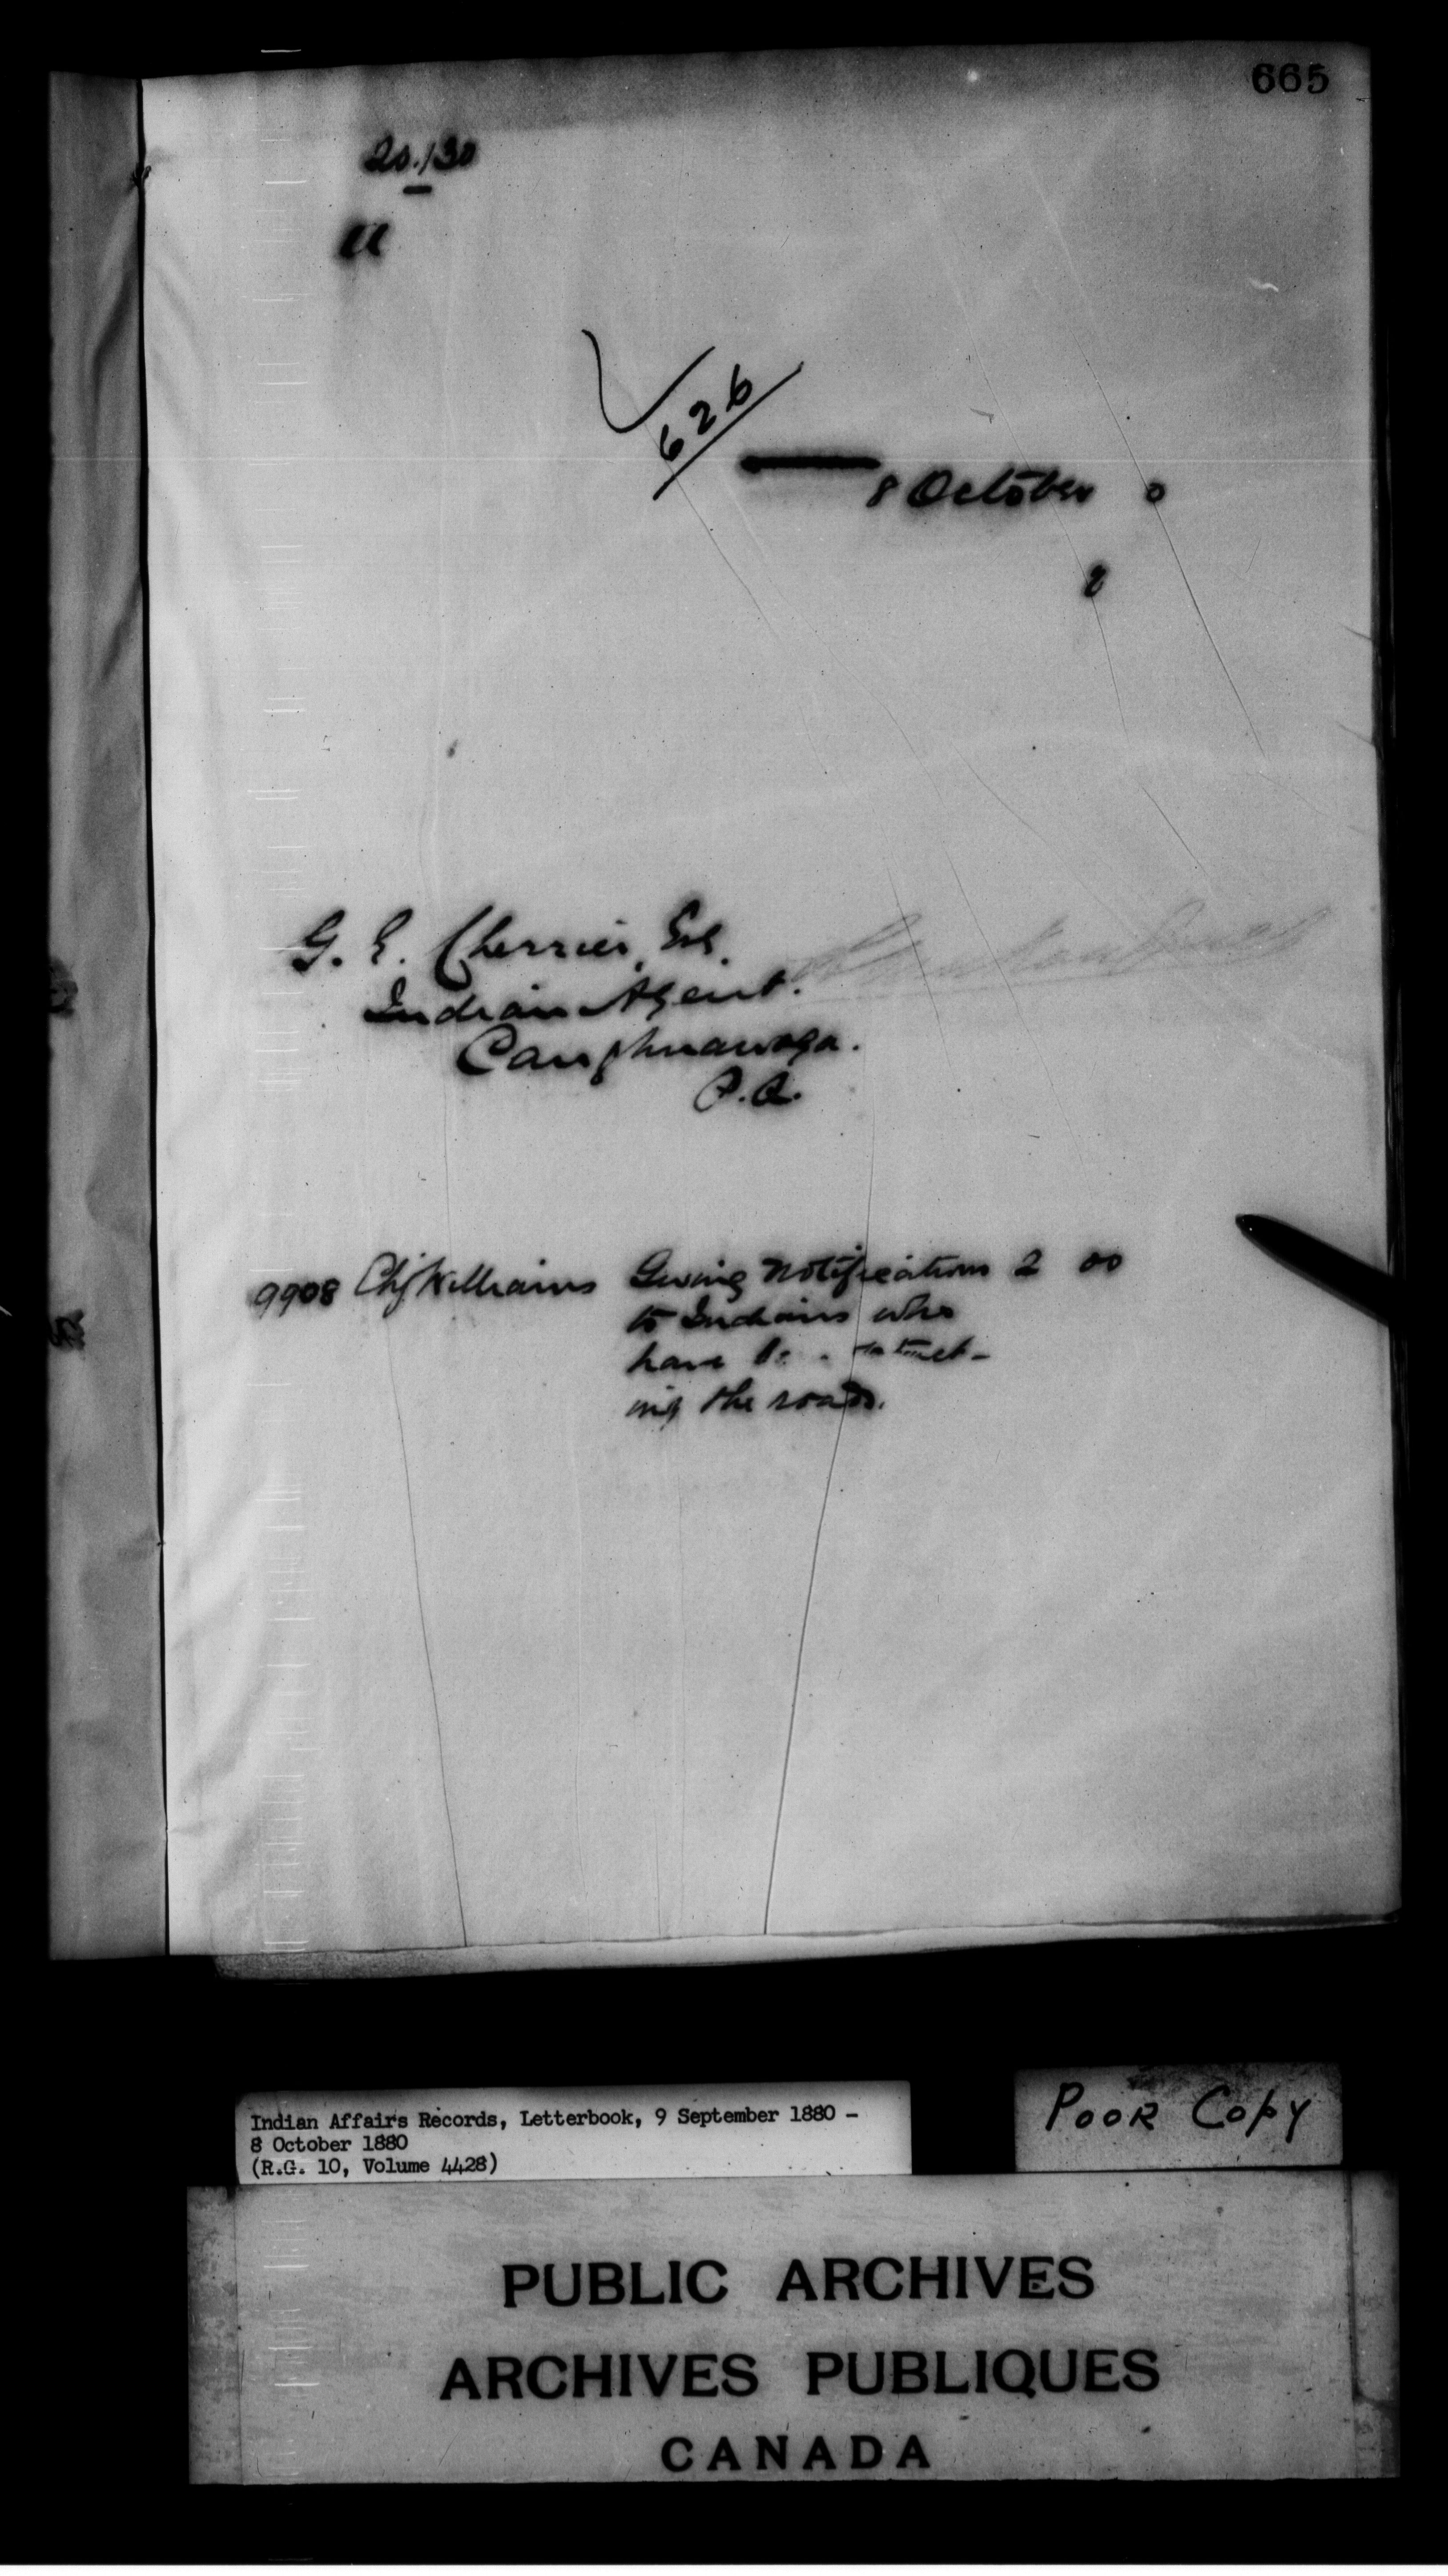 665
20.130
626
8 October 0
2
G. E. Cherrier, Esq.
Indian Agent.
Caughnawaga.
P.Q.
9908 Chf Williams Giving Notifications 2 00
to Indians who
have
ing the roads.
Indian Affairs Records, Letterbook, 9 September 1880 -
8 October 1880
(R.G. 10, Volume 4428)
POOR COPY
PUBLIC ARCHIVES
ARCHIVES PUBLIQUES
CANADA